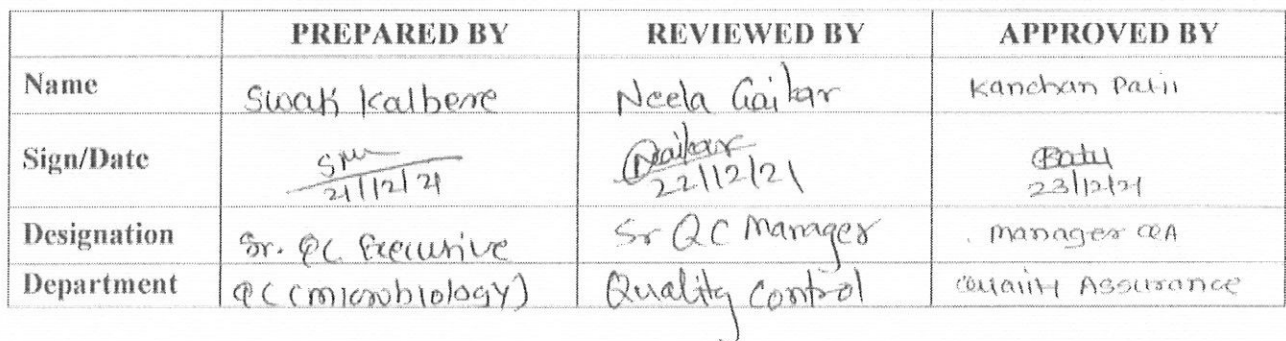 PREPARED BY REVIEWED BY APPROVED BY
Name Swati Kalbere Neela Gaikar Kanchan Patil
Sign/Date 21/12/21 22/12/21 23/12/21
Designation Sr. QC Executive Sr QC Manager Manager QA
Department QC (microbiology) Quality Control Quality Assurance